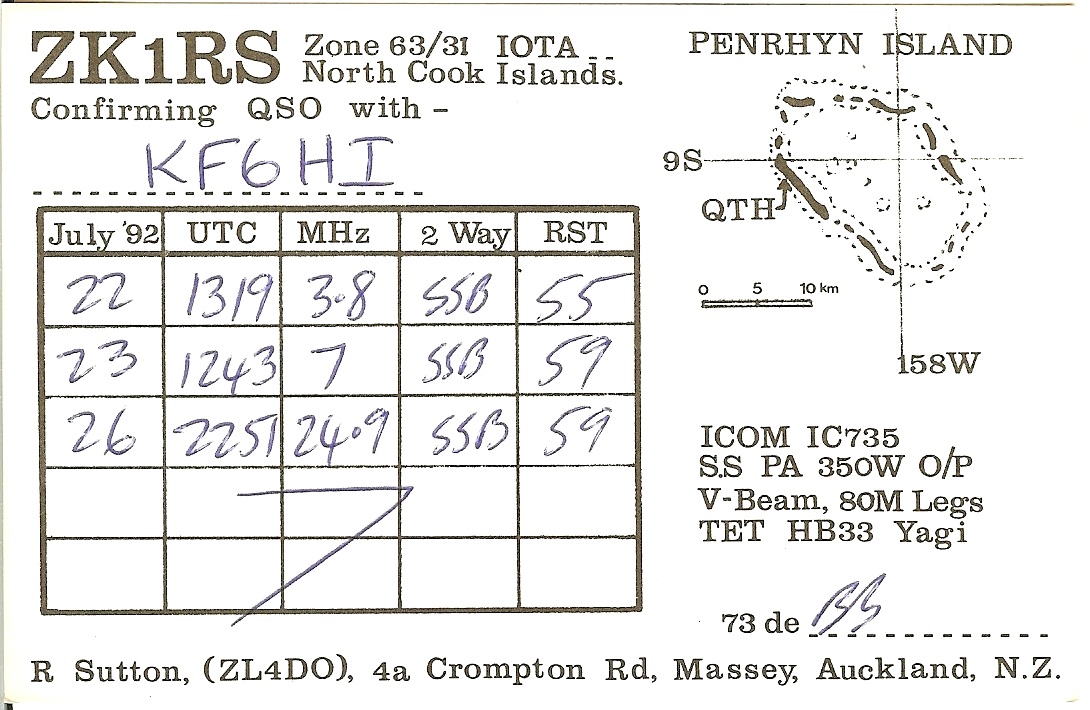 ZK1RS Zone 63/31 IOTA --
North Cook Islands.
Confirming QSO with -
KF6HI
July '92 UTC MHz 2 Way RST
22 1319 3.8 SSB 55
23 1243 7 SSB 59
26 2251 24.9 SSB 59
PENRHYN ISLAND
9S
QTH
0 5 10 km
158W
ICOM IC735
S.S PA 350W O/P
V-Beam, 80M Legs
TET HB33 Yagi
73 de
R Sutton, (ZL4DO), 4a Crompton Rd, Massey, Auckland, N.Z.